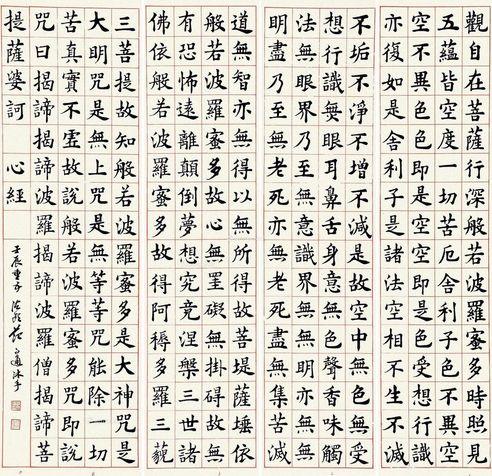 觀自在菩薩行深般若波羅蜜多時照見
五蘊皆空度一切苦厄舍利子色不異空
空不異色色即是空空即是色受想行識
亦復如是舍利子是諸法空相不生不滅
不垢不淨不增不減是故空中無色無受
想行識無眼耳鼻舌身意無色聲香味觸
法無眼界乃至無意識界無無明亦無無
明盡乃至無老死亦無老死盡無集苦滅
道無智亦無得以無所得故菩提薩埵依
般若波羅蜜多故心無罣礙無掛礙故無
有恐怖遠離顛倒夢想究竟涅槃三世諸
佛依般若波羅蜜多故得阿耨多羅三藐
三菩提故知般若波羅蜜多是大神咒是
大明咒是無上咒是無等等咒能除一切
苦真實不虛故說般若波羅蜜多咒即說
咒曰揭諦揭諦波羅揭諦波羅僧揭諦菩
提薩婆訶 心經
壬辰